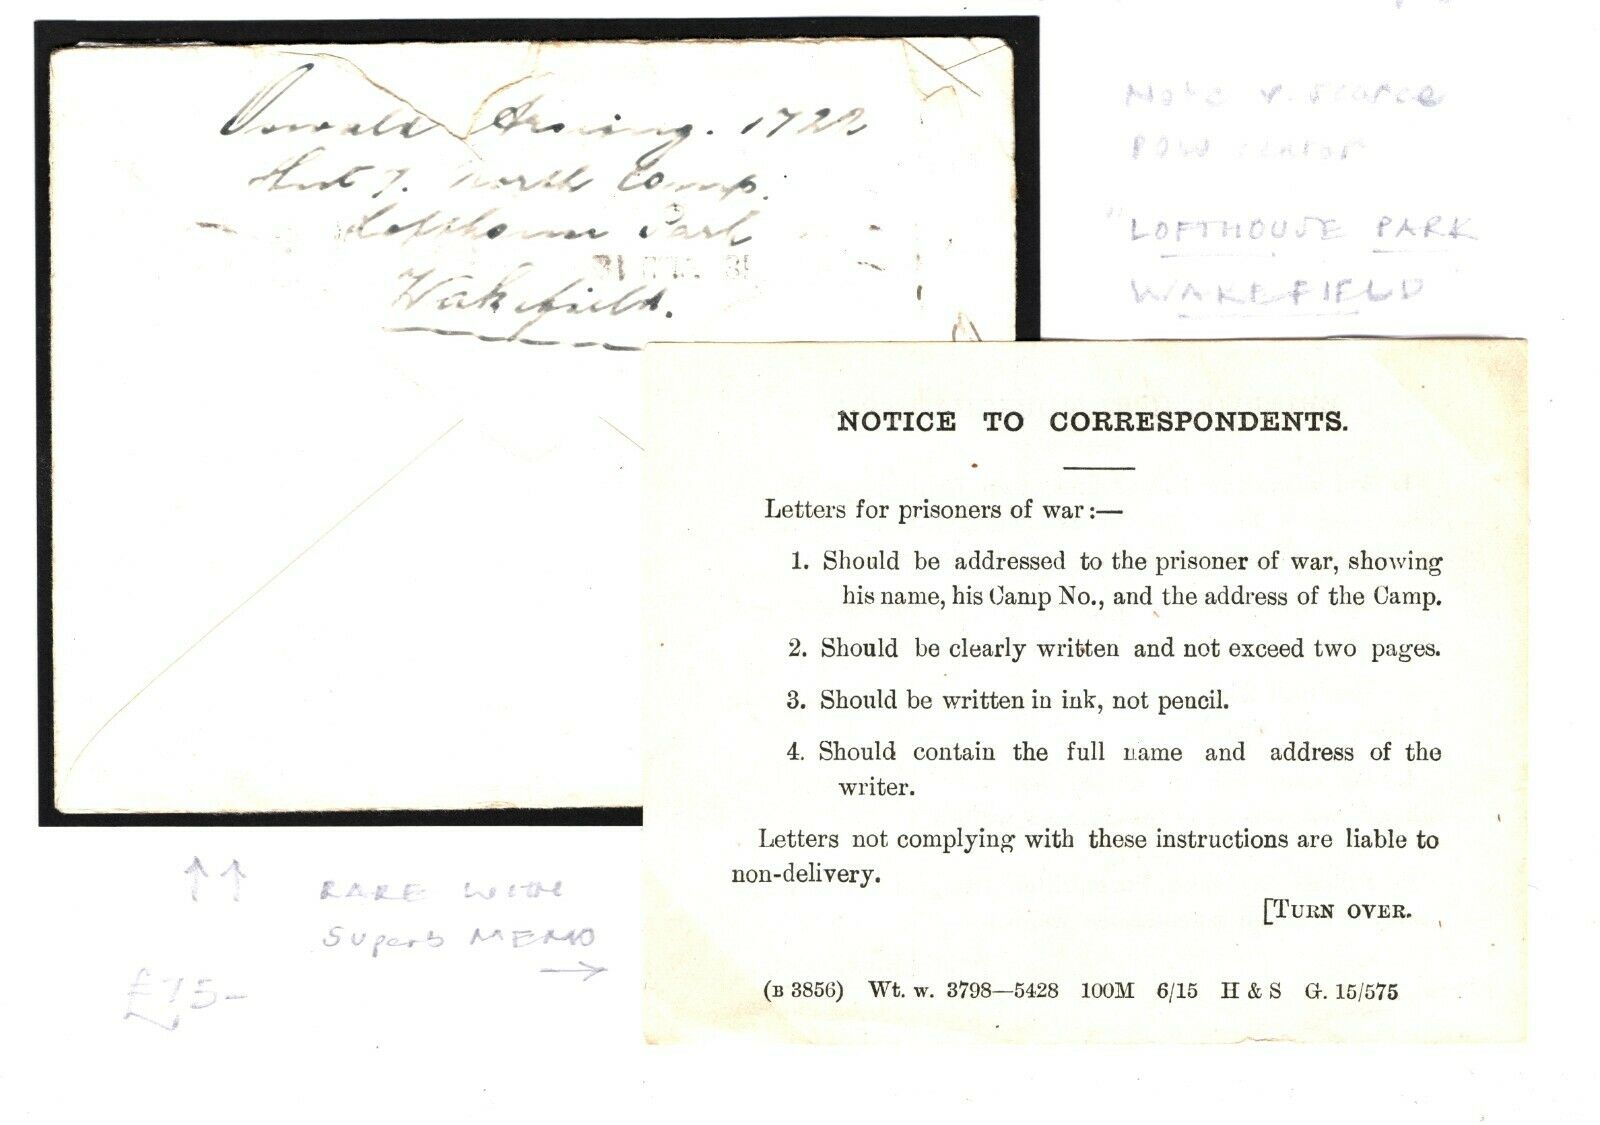 Oswald 1722
Hut 7. North Camp.
Lofthouse Park
Wakefield.
Note v. scarce
POW
"LOFTHOUSE PARK
WAKEFIELD
NOTICE TO CORRESPONDENTS.
Letters for prisoners of war:—
1. Should be addressed to the prisoner of war, showing
his name, his Camp No., and the address of the Camp.
2. Should be clearly written and not exceed two pages.
3. Should be written in ink, not pencil.
4. Should contain the full name and address of the
writer.
Letters not complying with these instructions are liable to
non-delivery.
[TURN OVER.
(B 3856) Wt. w. 3798—5428 100M 6/15 H & S G. 15/575
RARE WITH
Superb MEMO
£75-